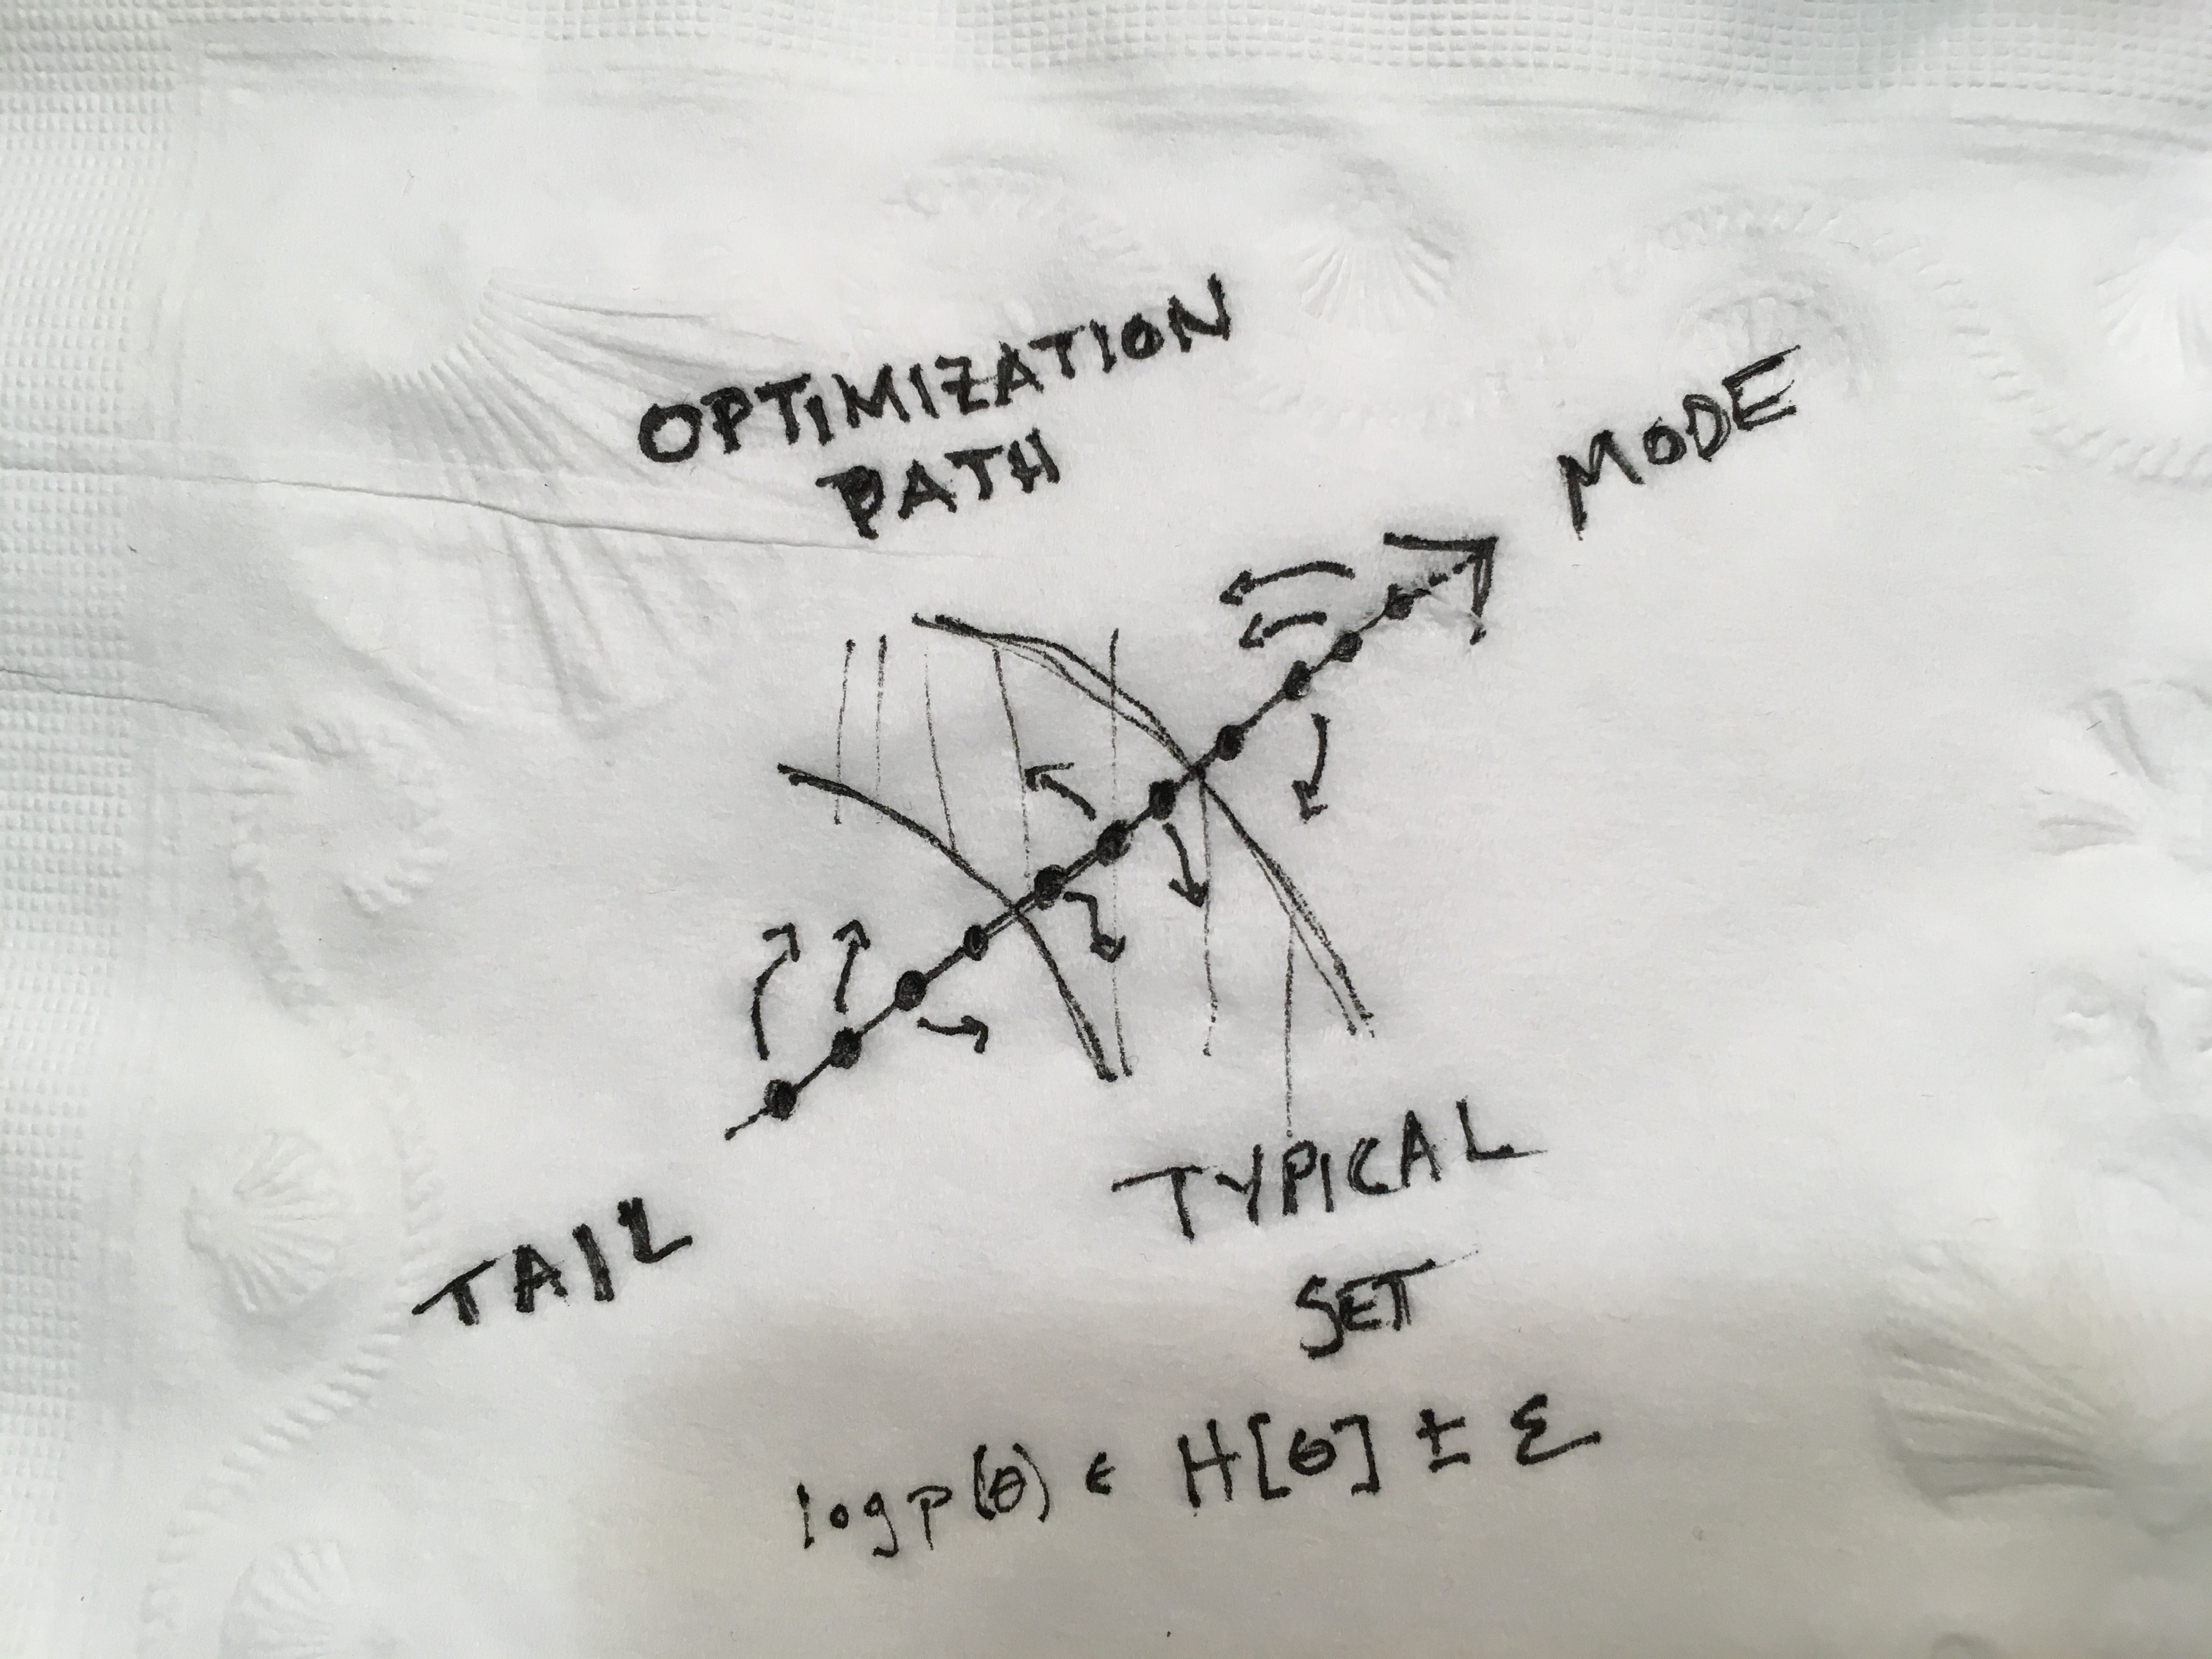 OPTIMIZATION
PATH
MODE
TAIL
TYPICAL
SET
log p(θ) ϵ H[θ] ± ε